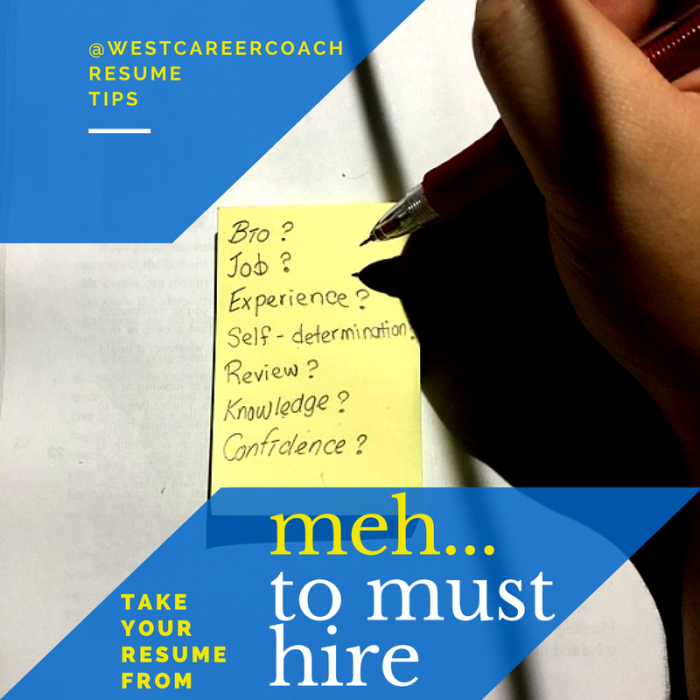 @WESTCAREERCOACH
RESUME
TIPS
Bio ?
Job ?
Experience ?
Self - determination
Review ?
Knowledge ?
Confidence ?
TAKE
YOUR
RESUME
FROM
meh...
to must
hire